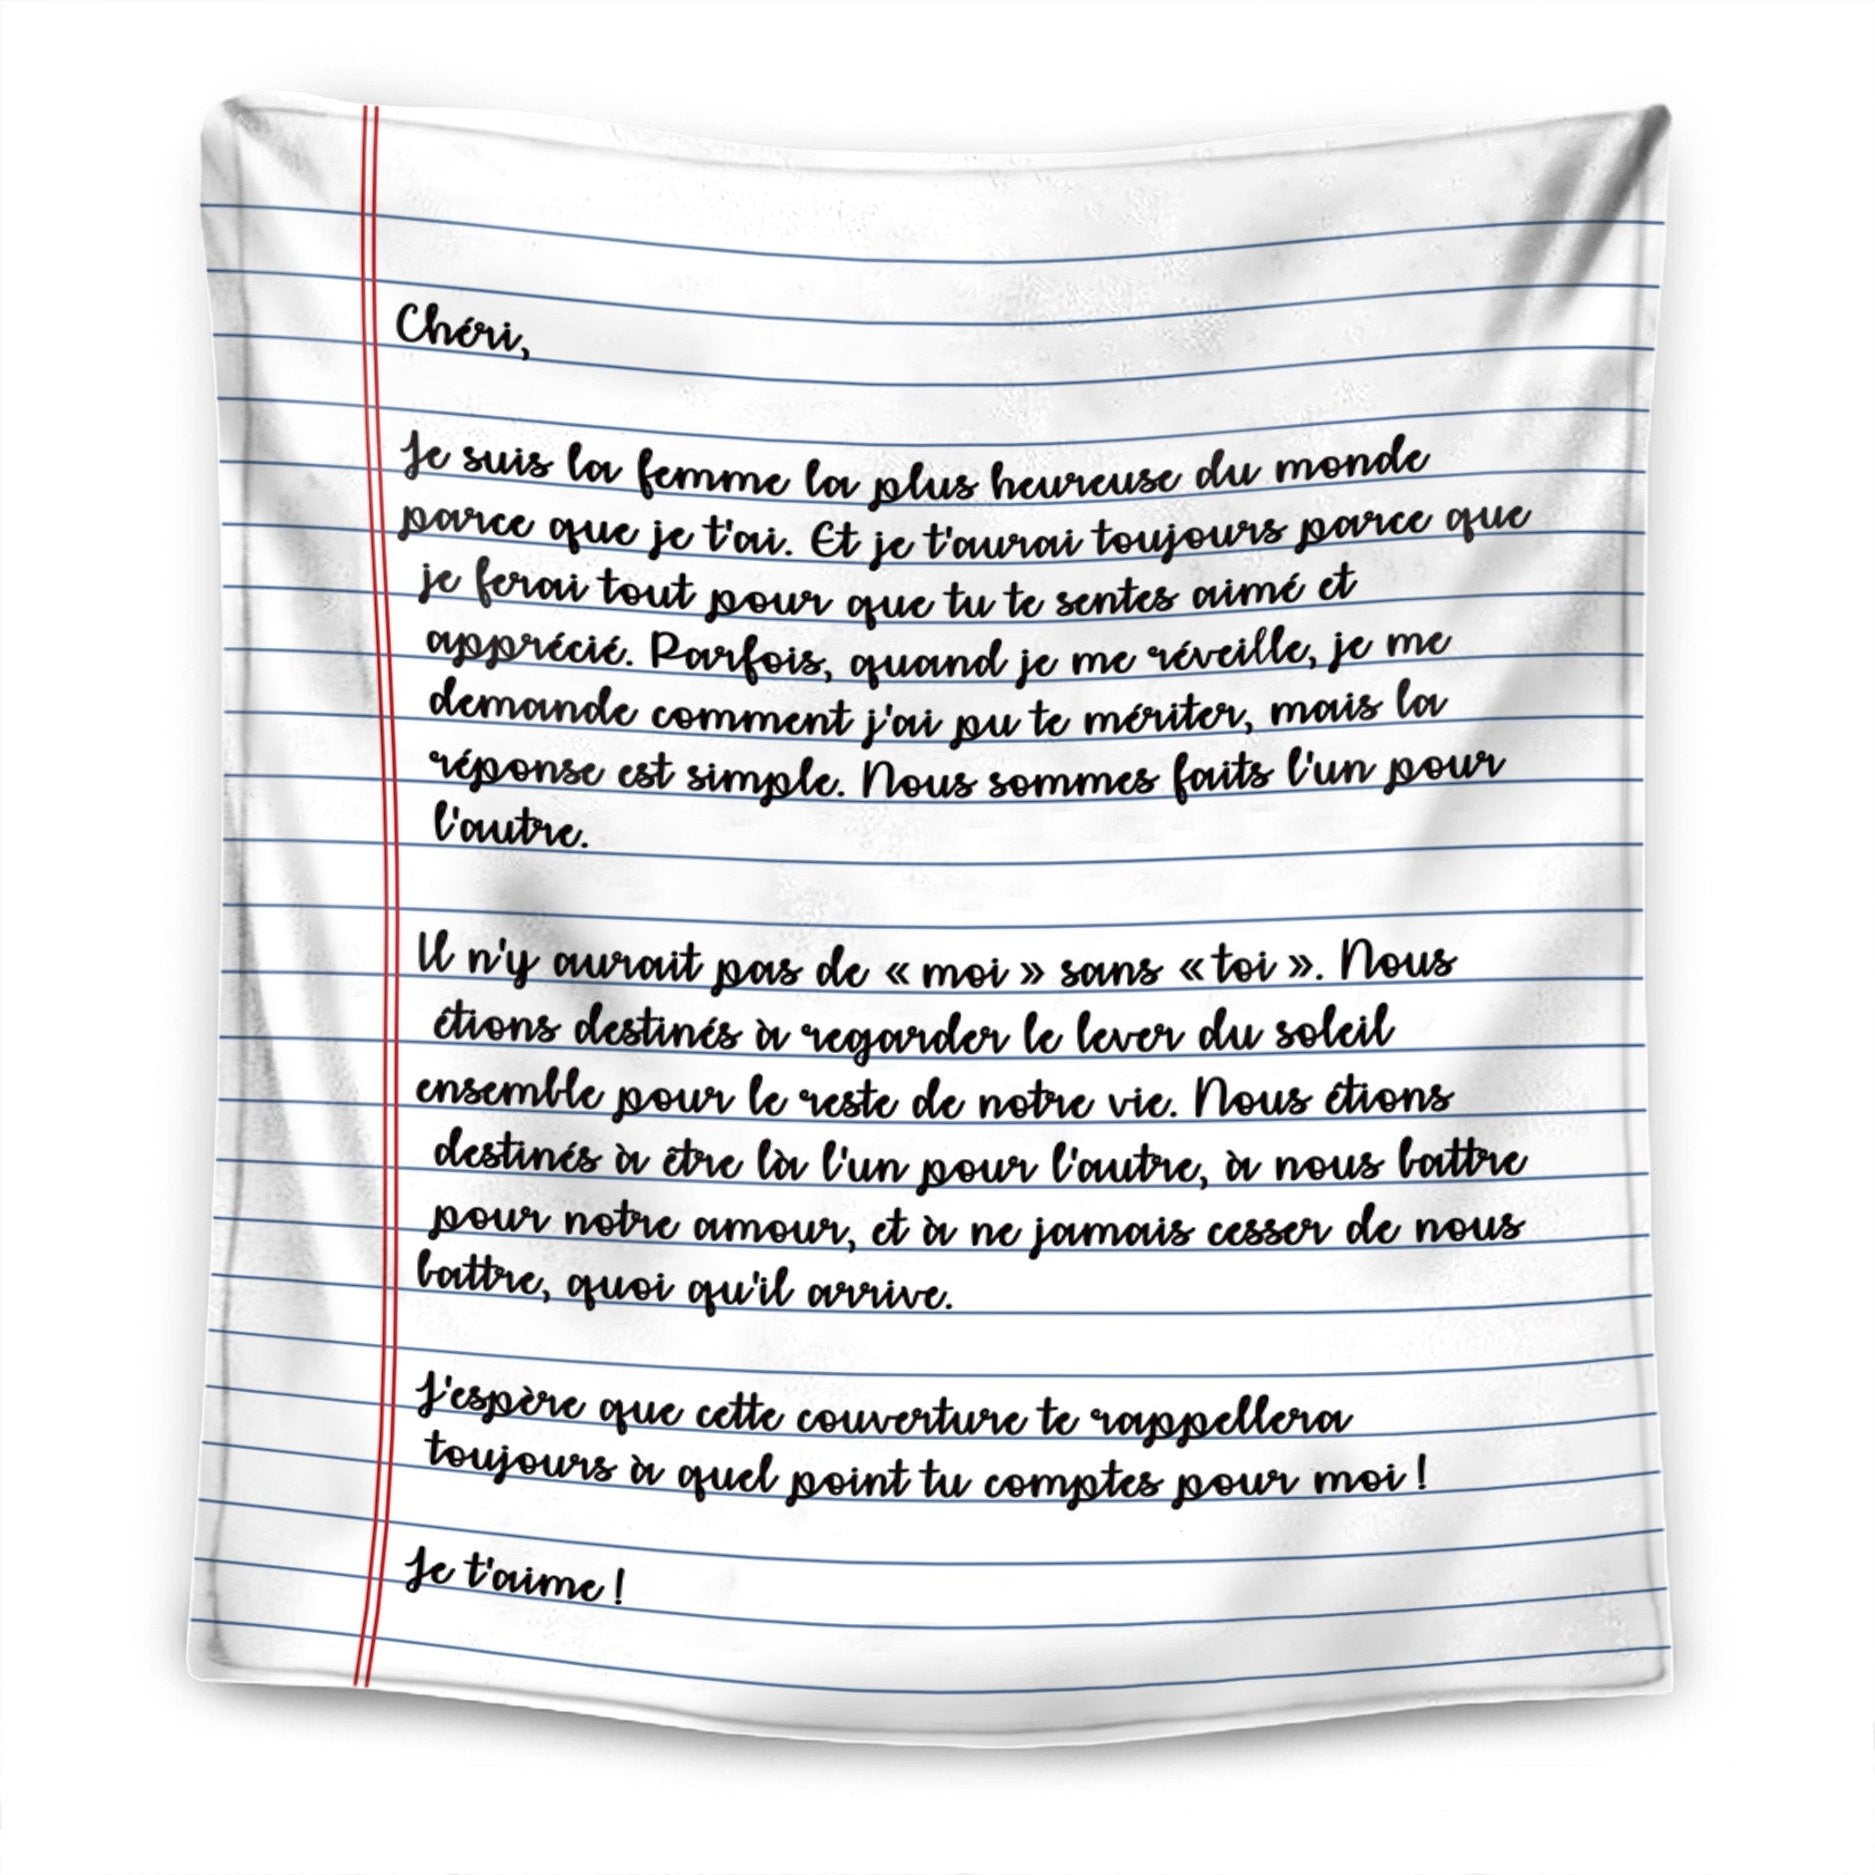 Chéri,
Je suis la femme la plus heureuse du monde
parce que je t'ai. Et je t'aurai toujours parce que
je ferai tout pour que tu te sentes aimé et
apprécié. Parfois, quand je me réveille, je me
demande comment j'ai pu te mériter, mais la
réponse est simple. Nous sommes faits l'un pour
l'autre.
Il n'y aurait pas de « moi » sans « toi ». Nous
étions destinés à regarder le lever du soleil
ensemble pour le reste de notre vie. Nous étions
destinés à être là l'un pour l'autre, à nous battre
pour notre amour, et à ne jamais cesser de nous
battre, quoi qu'il arrive.
J'espère que cette couverture te rappellera
toujours à quel point tu comptes pour moi !
Je t'aime !